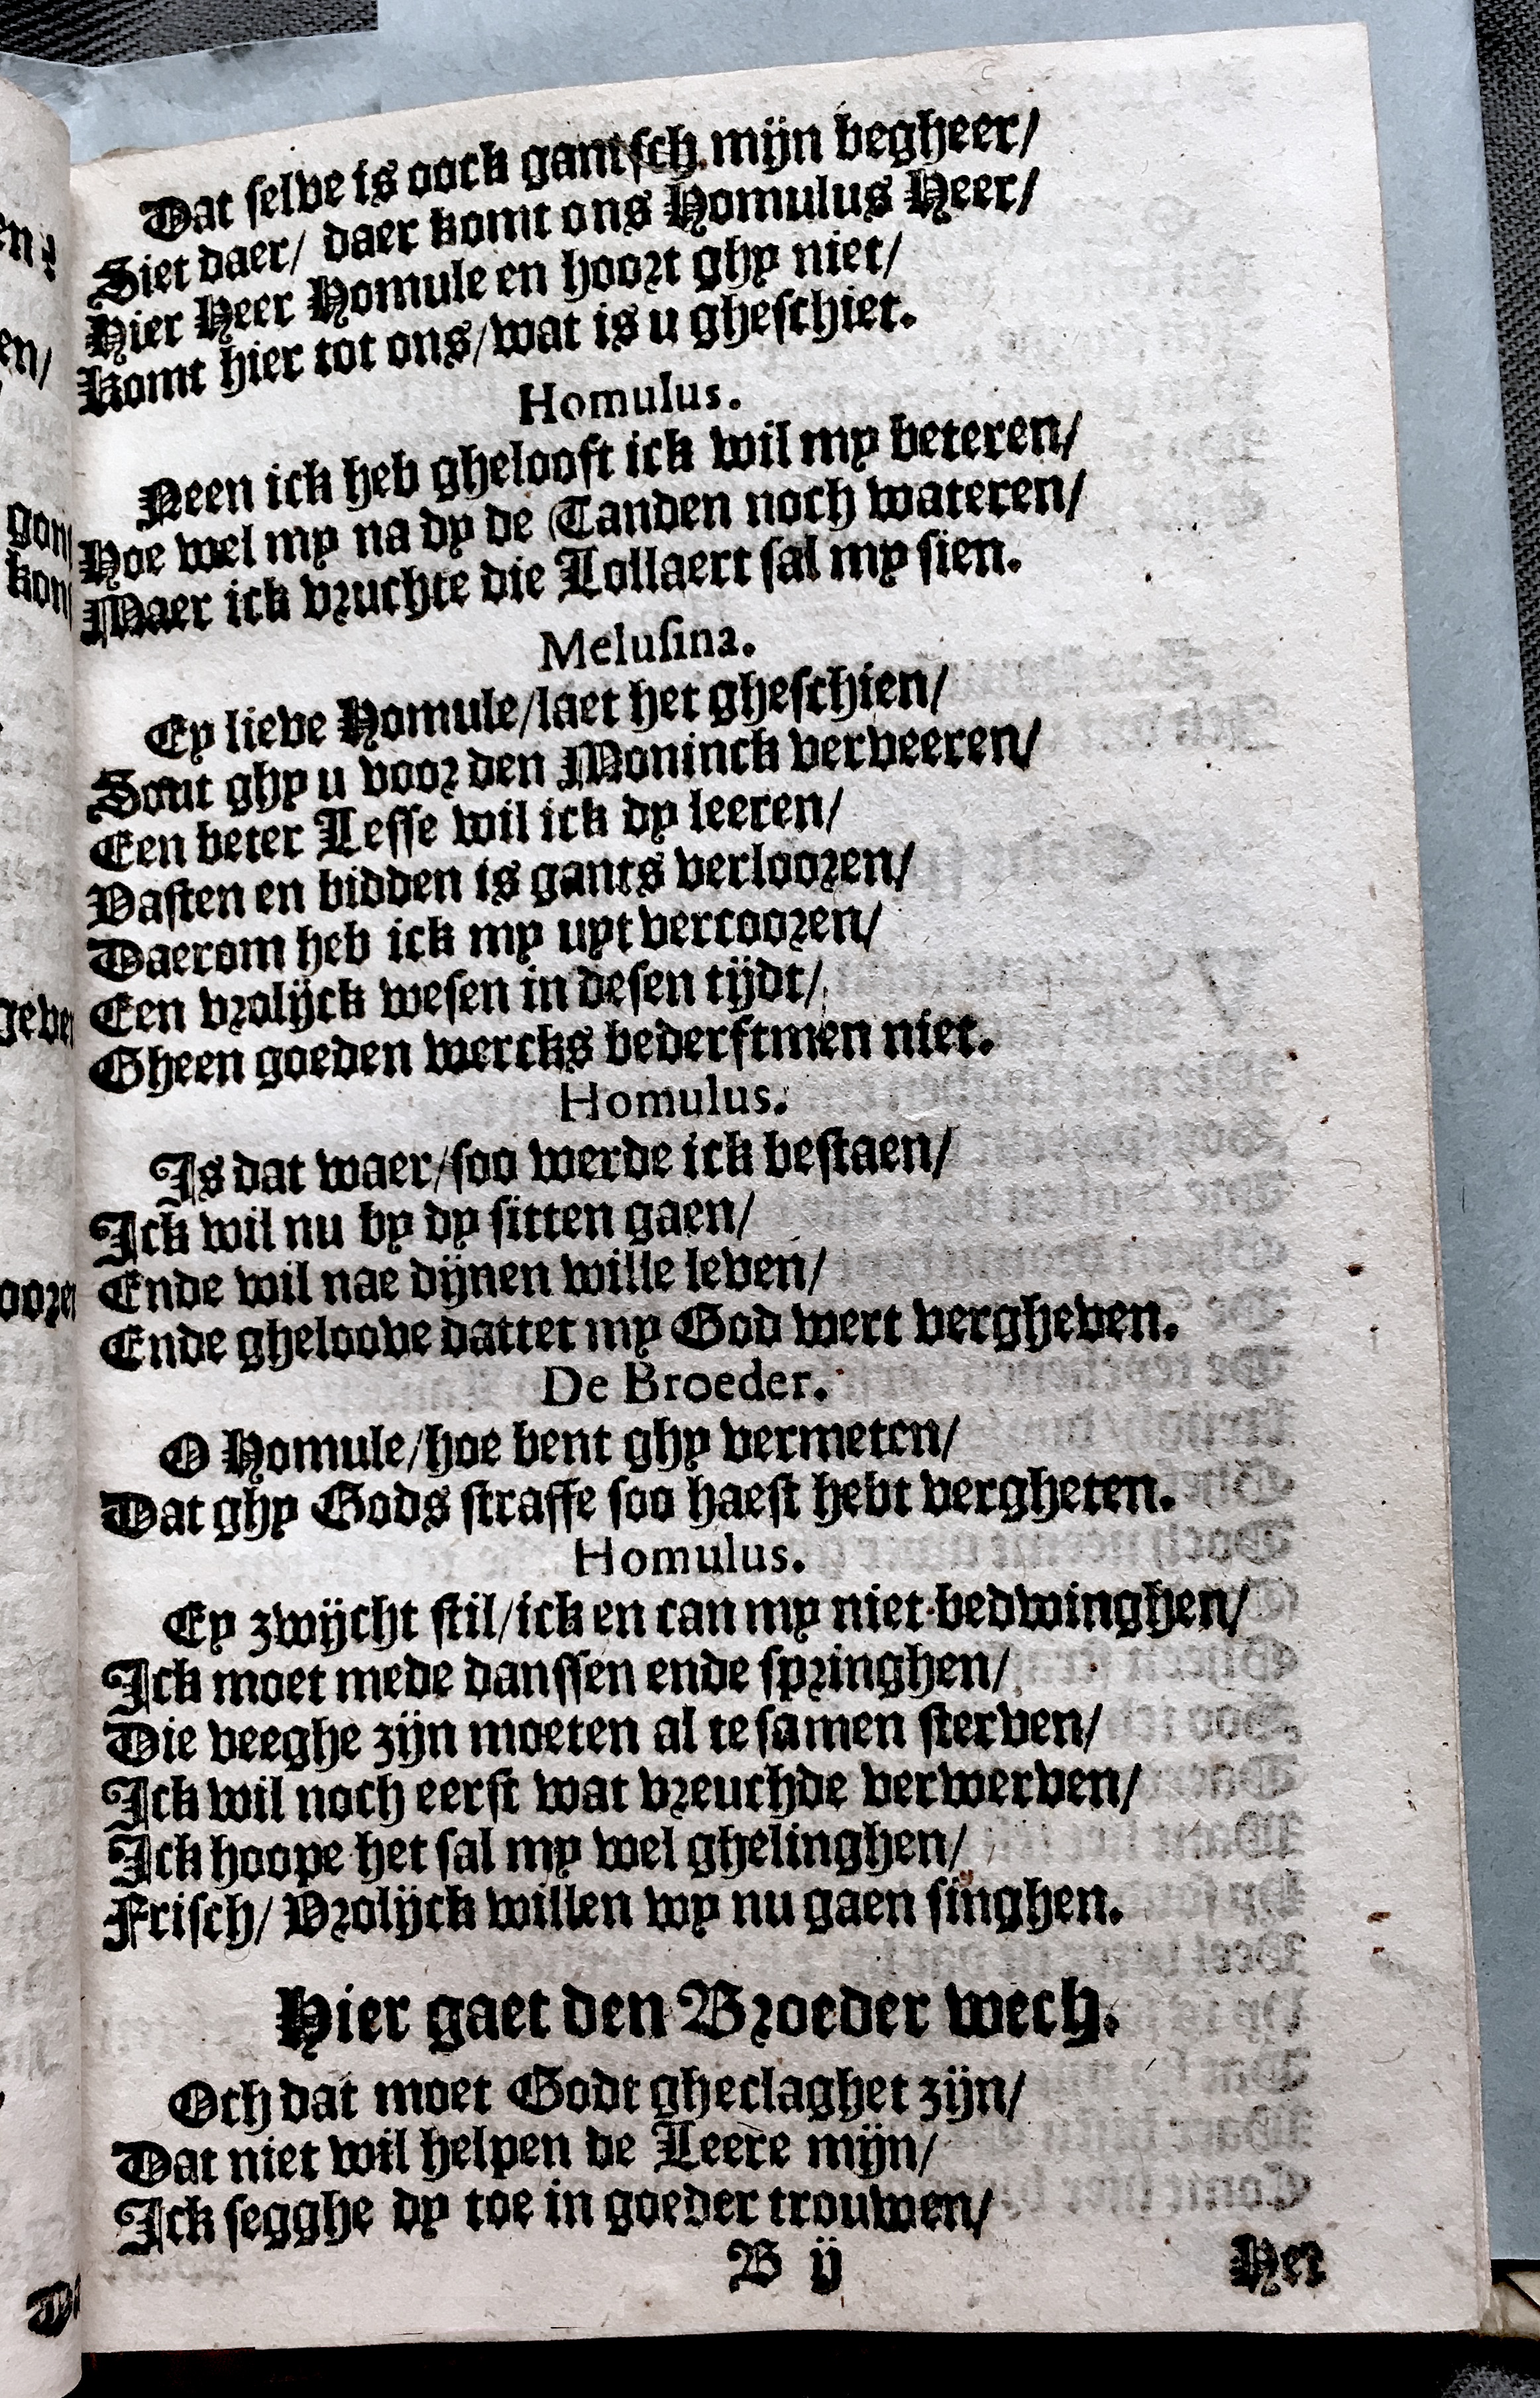 Dat selve is oock gantsch mijn begheer/
Siet daer/ daer komt ons Homulus Heer/
Hier Heer Homule en hoort ghy niet/
Komt hier tot ons/wat is u gheschiet.
Homulus.
Neen ick heb ghelooft ick wil my beteren/
Hoe wel my na dy de Tanden noch wateren/
Maer ick vruchte die Lollaert sal my sien.
Melusina.
Ey lieve Homule/laet het gheschien/
Sout ghy u voor den Moninck verveeren/
Een beter Lesse wil ick dy leeren/
Vasten en bidden is gants verlooren/
Daerom heb ick my uyt vercooren/
Een vrolijck wesen in desen tijdt/
Gheen goeden wercks bederftmen niet.
Homulus.
Is dat waer/soo werde ick bestaen/
Ick wil nu by dy sitten gaen/
Ende wil nae dijnen wille leven/
Ende gheloove dattet my God wert vergheven.
De Broeder.
O Homule/hoe bent ghy vermeten/
Dat ghy Gods straffe soo haest hebt vergheten.
Homulus.
Ey zwijcht stil/ick en can my niet bedwinghen/
Ick moet mede danssen ende springhen/
Die veeghe zijn moeten al te samen sterven/
Ick wil noch eerst wat vreuchde verwerven/
Ick hoope het sal my wel ghelinghen/
Frisch/ Vrolijck willen wy nu gaen singhen.
Hier gaet den Broeder wech.
Och dat moet Godt gheclaghet zijn/
Dat niet wil helpen de Leere mijn/
Ick segghe dy toe in goeder trouwen/
B ij Het